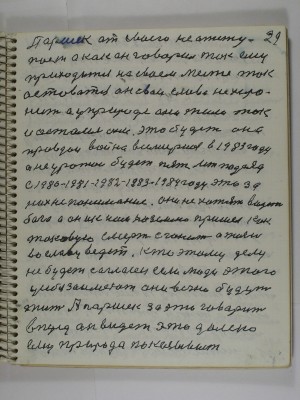 29
Паршек от своего не отступ-
поет а как он говорил так ему
приходится на своем месте так
оставатся он свои слова не хоро-
нит а у природе оно жило так
и осталося оно. Это будет она
правдой война всемирная в 1983 году
а неурожай будет пять лет подряд
с 1980-1981-1982-1983-1984 году это за
нахне понимание. они не хотят видет
бога а он же к нам на землю пришел как
таковую смерт сгонит а жизн
во славу ведет. Кто этому делу
не будет согласен сем люди этого
дела они вечно будут
жит А паршек за это говорит
вперед он видет это далеко
ему природа показывает